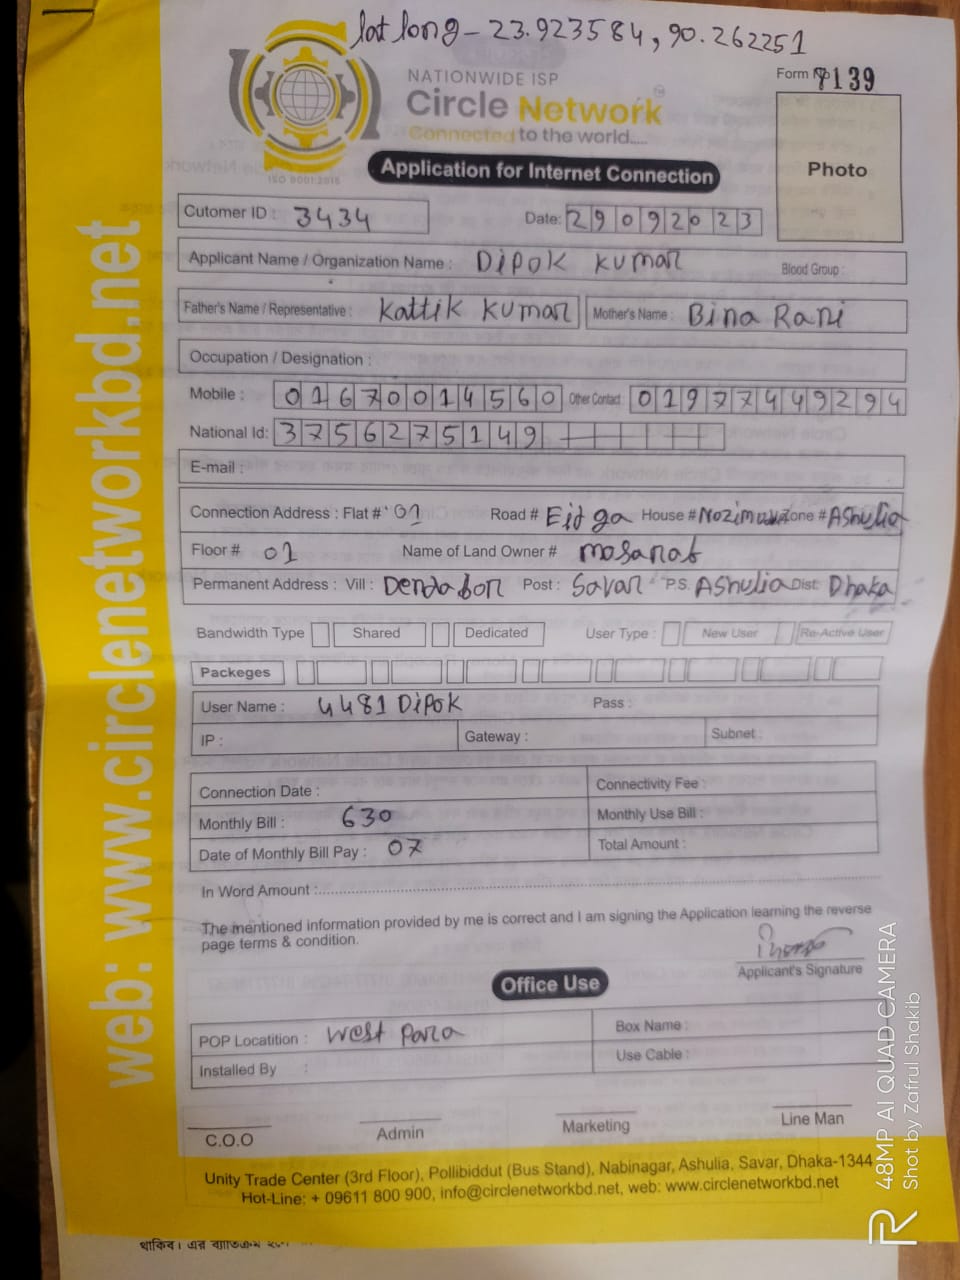 lat long - 23.923584, 90.262251
NATIONWIDE ISP
Circle Network
Connected to the world.....
ISO 9001:2015
Form No 7139
Photo
Application for Internet Connection
Cutomer ID : 3434
Date: 29092023
Applicant Name / Organization Name : Dipok Kumar
Blood Group :
Father's Name / Representative : Kattik Kumar
Mother's Name : Bina Rani
Occupation / Designation :
Mobile : 01670014560
Other Contact : 01977449294
National Id: 3756275149
E-mail :
Connection Address : Flat # 01 Road # Eid ga House # Zone # Ashulia
Floor # 01 Name of Land Owner # mosarab
Permanent Address : Vill : Dendabor Post : Savar P.S. Ashulia Dist: Dhaka
Bandwidth Type Shared Dedicated User Type : New User Re-Active User
Packeges
User Name : 4481 Dipok Pass :
IP : Gateway : Subnet :
Connection Date : Connectivity Fee :
Monthly Bill : 630 Monthly Use Bill :
Date of Monthly Bill Pay : 07 Total Amount :
In Word Amount :
The mentioned information provided by me is correct and I am signing the Application learning the reverse
page terms & condition.
Applicant's Signature
Office Use
POP Locatition : West Para Box Name :
Installed By : Use Cable :
C.O.O Admin Marketing Line Man
Unity Trade Center (3rd Floor), Pollibiddut (Bus Stand), Nabinagar, Ashulia, Savar, Dhaka-1344
Hot-Line: + 09611 800 900, info@circlenetworkbd.net, web: www.circlenetworkbd.net
web: www.circlenetworkbd.net
থাকিব। এর ব্যতিক্রম
48MP AI QUAD CAMERA
Shot by Zafrul Shakib